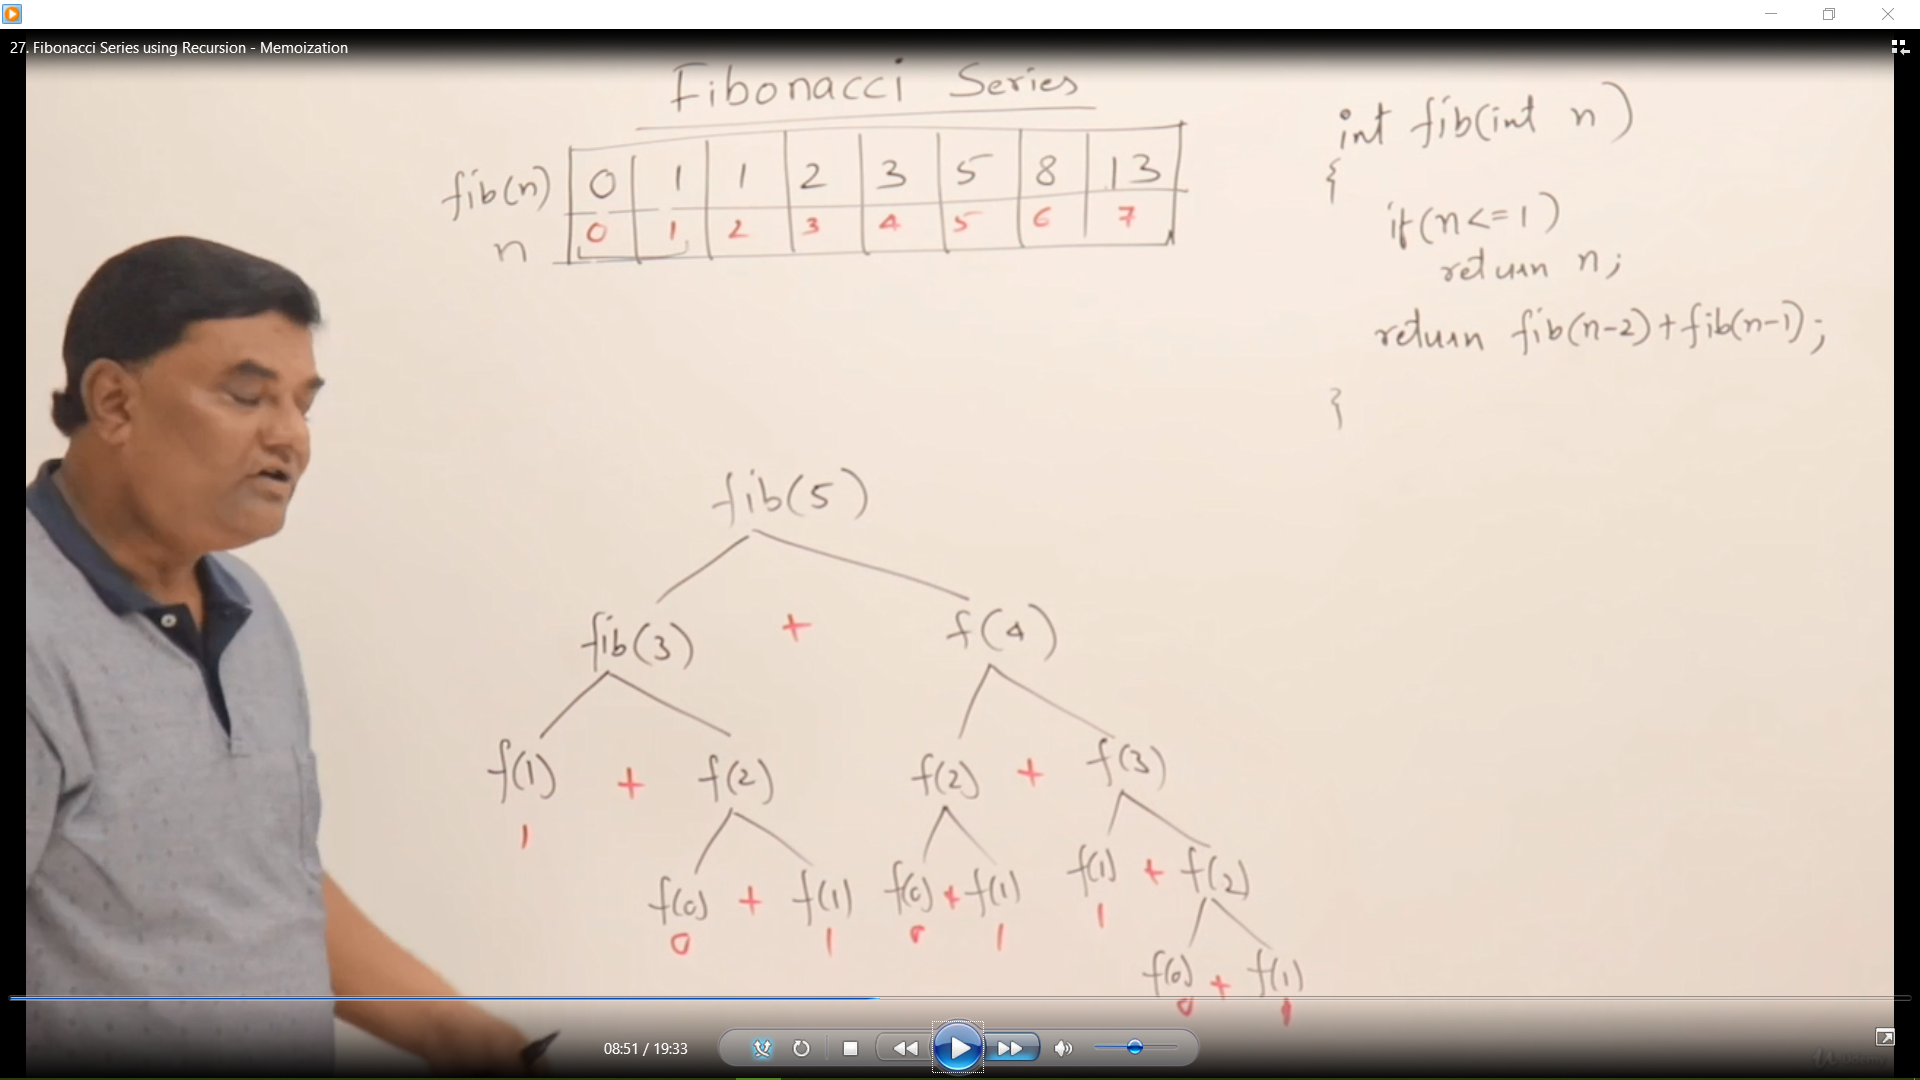 27. Fibonacci Series using Recursion - Memoization
Fibonacci Series
fib(n) 0 1 1 2 3 5 8 13
n 0 1 2 3 4 5 6 7
int fib(int n)
{
if(n<=1)
return n;
return fib(n-2)+fib(n-1);
}
fib(5)
fib(3) + f(4)
f(1) + f(2) f(2) + f(3)
1
f(0) + f(1) f(0) + f(1) f(1) + f(2)
0 1 0 1 1
f(0) + f(1)
0 1
08:51 / 19:33
Udemy